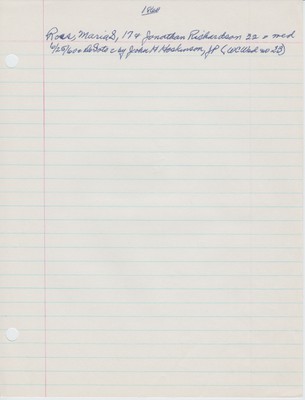 1860
Ross, Maria S, 17 & Jonathan Richardson 22 = med
6/25/60 @ DeSoto c by John M Hoskinson, JP (WC Wed no 28)